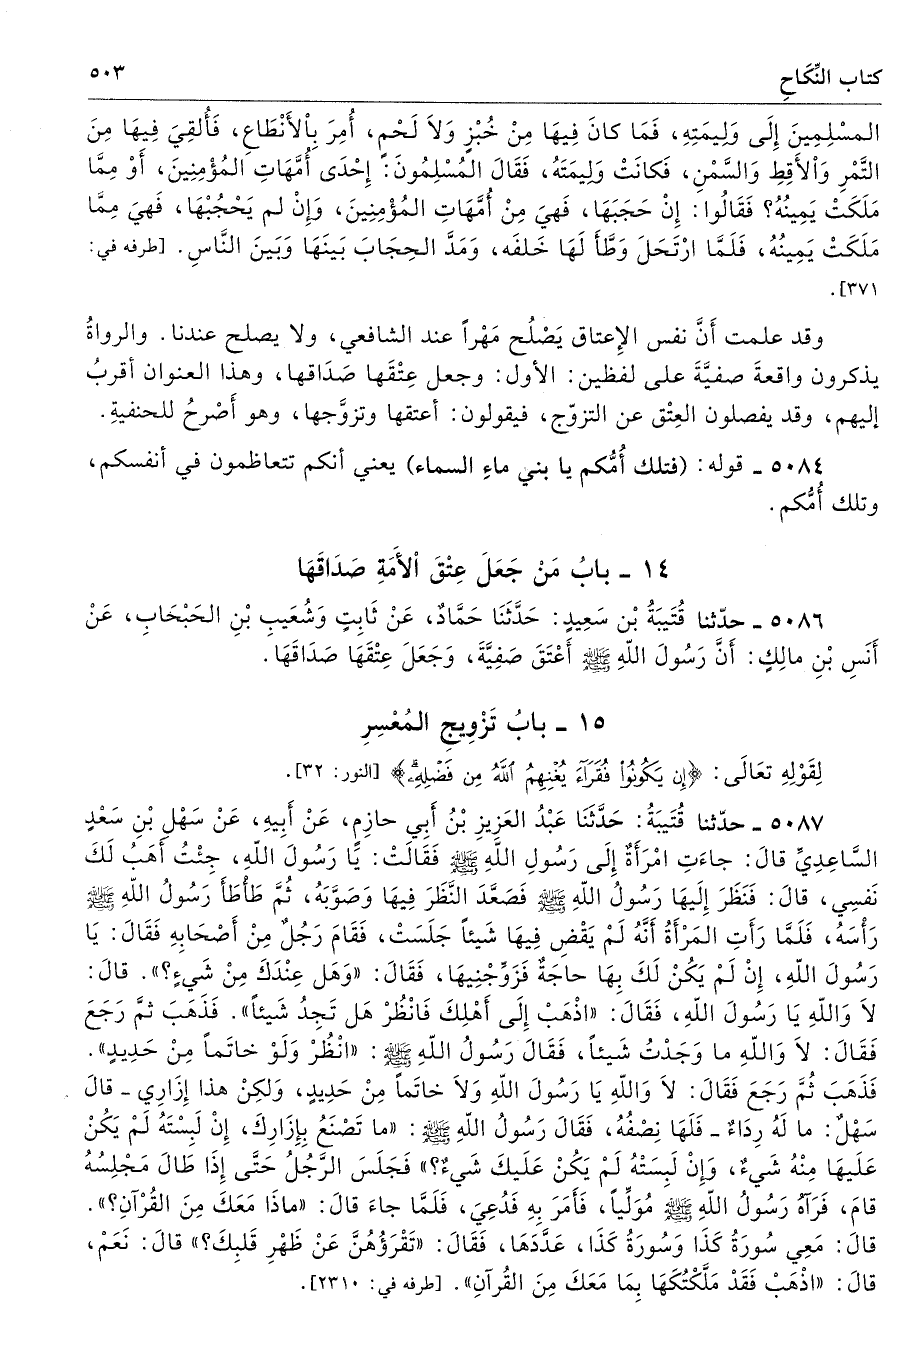 كتاب النِّكَاحِ ٥٠٣
المسْلِمِينَ إِلَى وَلِيمَتِهِ، فَمَا كانَ فِيهَا مِنْ خُبْزٍ وَلاَ لَحْمٍ، أُمِرَ بِالأَنْطَاعِ، فَأُلقِيَ فِيهَا مِنَ
التَّمْرِ وَالأَقِطِ وَالسَّمْنِ، فَكانَتْ وَلِيمَتَهُ، فَقَالَ المُسْلِمُونَ: إِحْدَى أُمَّهَاتِ المُؤْمِنِينَ، أَوْ مِمَّا
مَلَكَتْ يَمِينُهُ؟ فَقَالُوا: إِنْ حَجَبَهَا، فَهيَ مِنْ أُمَّهَاتِ المُؤْمِنِينَ، وَإِنْ لم يَحْجُبْهَا، فَهيَ مِمَّا
مَلَكَتْ يَمِينُهُ، فَلَمَّا ارْتَحَلَ وَطَّأَ لَهَا خَلفَه، وَمَدَّ الحِجَابَ بَينَهَا وَبَينَ النَّاسِ. [طرفه في:
٣٧١].
وقد علمت أَنَّ نفس الإِعتاق يَصْلُح مَهْراً عند الشافعي، ولا يصلح عندنا. والرواةُ
يذكرون واقعةَ صفيَّةَ على لفظين: الأول: وجعل عِتْقَها صَدَاقها، وهذا العنوان أقربُ
إليهم، وقد يفصلون العِتْق عن التزوّج، فيقولون: أعتقها وتزوَّجها، وهو أَصْرحُ للحنفيةِ.
٥٠٨٤ ـ قوله: (فتلك أُمُّكم يا بني ماءِ السماء) يعني أنكم تتعاظمون في أنفسكم،
وتلك أُمُّكم.
١٤ ـ بابُ مَنْ جَعَلَ عِتْقَ الأَمَةِ صَدَاقَهَا
٥٠٨٦ ـ حدّثنا قُتَيبَةُ بْن سَعِيدٍ: حَدَّثَنَا حَمَّادٌ، عَنْ ثَابِتٍ وَشُعَيبِ بْنِ الحَبْحَابِ، عَنْ
أَنَسِ بْنِ مالِكٍ: أَنَّ رَسُولَ اللّهِ ﷺ أَعْتَقَ صَفِيَّةَ، وَجَعَلَ عِتْقَهَا صَدَاقَهَا.
١٥ ـ بابُ تَزْوِيجِ المُعْسِرِ
لِقَوْلِهِ تَعَالَى: ﴿إِن يَكُونُواْ فُقَرَآءَ يُغْنِهِمُ ٱللَّهُ مِن فَضْلِهِۦۗ﴾ [النور: ٣٢].
٥٠٨٧ ـ حدّثنا قُتَيبَةُ: حَدَّثَنَا عَبْدُ العَزِيزِ بْنُ أَبِي حازِمٍ، عَنْ أَبِيهِ، عَنْ سَهْلِ بْنِ سَعْدٍ
السَّاعِدِيِّ قالَ: جاءَتِ امْرَأَةٌ إِلَى رَسُولِ اللّهِ ﷺ فَقَالَتْ: يَا رَسُولَ اللّهِ، جِئْتُ أَهَبُ لَكَ
نَفسِي، قالَ: فَنَظَرَ إِلَيهَا رَسُولُ اللّهِ ﷺ فَصَعَّدَ النَّظَرَ فِيهَا وَصَوَّبَهُ، ثُمَّ طَأْطَأَ رَسُولُ اللّهِ ﷺ
رَأْسَهُ، فَلَمَّا رَأَتِ المَرْأَةُ أَنَّهُ لَمْ يَقْضِ فِيهَا شَيئاً جَلَسَتْ، فَقَامَ رَجُلٌ مِنْ أَصْحَابِهِ فَقَالَ: يَا
رَسُولَ اللّهِ، إِنْ لَمْ يَكُنْ لَكَ بِهَا حاجَةٌ فَزَوِّجْنِيهَا، فَقَالَ: «وَهَل عِنْدَكَ مِنْ شَيءٍ؟». قالَ:
لاَ وَاللّهِ يَا رَسُولَ اللّهِ، فَقَالَ: «اذْهَبْ إِلَى أَهْلِكَ فَانْظُرْ هَل تَجِدُ شَيئاً». فَذَهَبَ ثمَّ رَجَعَ
فَقَالَ: لاَ وَاللّهِ ما وَجَدْتُ شَيئاً، فَقَالَ رَسُولُ اللّهِ ﷺ: «انْظُرْ وَلَوْ خاتَماً مِنْ حَدِيدٍ».
فَذَهَبَ ثُمَّ رَجَعَ فَقَالَ: لاَ وَاللّهِ يَا رَسُولَ اللّهِ وَلاَ خاتَماً مِنْ حَدِيدٍ، وَلكِنْ هذا إِزَارِي ـ قالَ
سَهْلٌ: ما لَهُ رِدَاءٌ ـ فَلَهَا نِصْفُهُ، فَقَالَ رَسُولُ اللّهِ ﷺ: «ما تَصْنَعُ بِإِزَارِكَ، إِنْ لَبِسْتَهُ لَمْ يَكُنْ
عَلَيهَا مِنْهُ شَيءٌ، وَإِنْ لَبِسَتْهُ لَمْ يَكُنْ عَلَيكَ شَيءٌ؟» فَجَلَسَ الرَّجُلُ حَتَّى إِذَا طَالَ مَجْلِسُهُ
قامَ، فَرَآهُ رَسُولُ اللّهِ ﷺ مُوَلِّياً، فَأَمَرَ بِهِ فَدُعِيَ، فَلَمَّا جاءَ قالَ: «ماذَا مَعَكَ مِنَ القُرْآنِ؟».
قالَ: مَعِي سُورَةُ كَذَا وَسُورَةُ كَذَا، عَدَّدَهَا، فَقَالَ: «تَقْرَؤُهُنَّ عَنْ ظَهْرِ قَلبِكَ؟» قالَ: نَعَمْ،
قالَ: «اذْهَبْ فَقَدْ مَلَّكْتُكَهَا بِمَا مَعَكَ مِنَ القُرْآنِ». [طرفه في: ٢٣١٠].